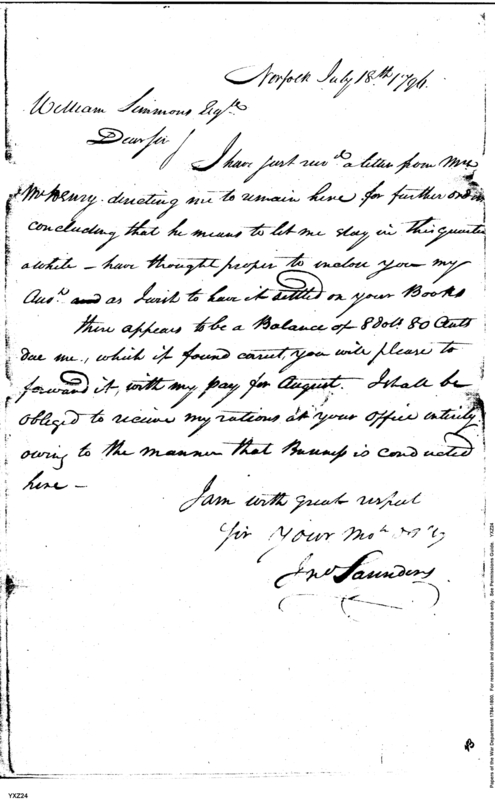 Norfolk July 18th 1796.
William Simmons Esqr.
Dear Sir
I have just recd a letter from Mr
McHenry directing me to remain here for further orders
concluding that he means to let me stay in this quarter
a while - have thought proper to inclose you my
and as I wish to have it settled on your Books
there appears to be a Balance of 8 Dols. 80 Cents
due me, which if found corect, you will please to
forward it, with my pay for August. I shall be
obliged to receive my rations at your office intirely
owing to the manner that is conducted
here -
I am with great respect
Sir Your Mot
Jno Saunders
Papers of the War Department 1784-1800. For research and instructional use only. See Permissions Guide. YXZ24
YXZ24